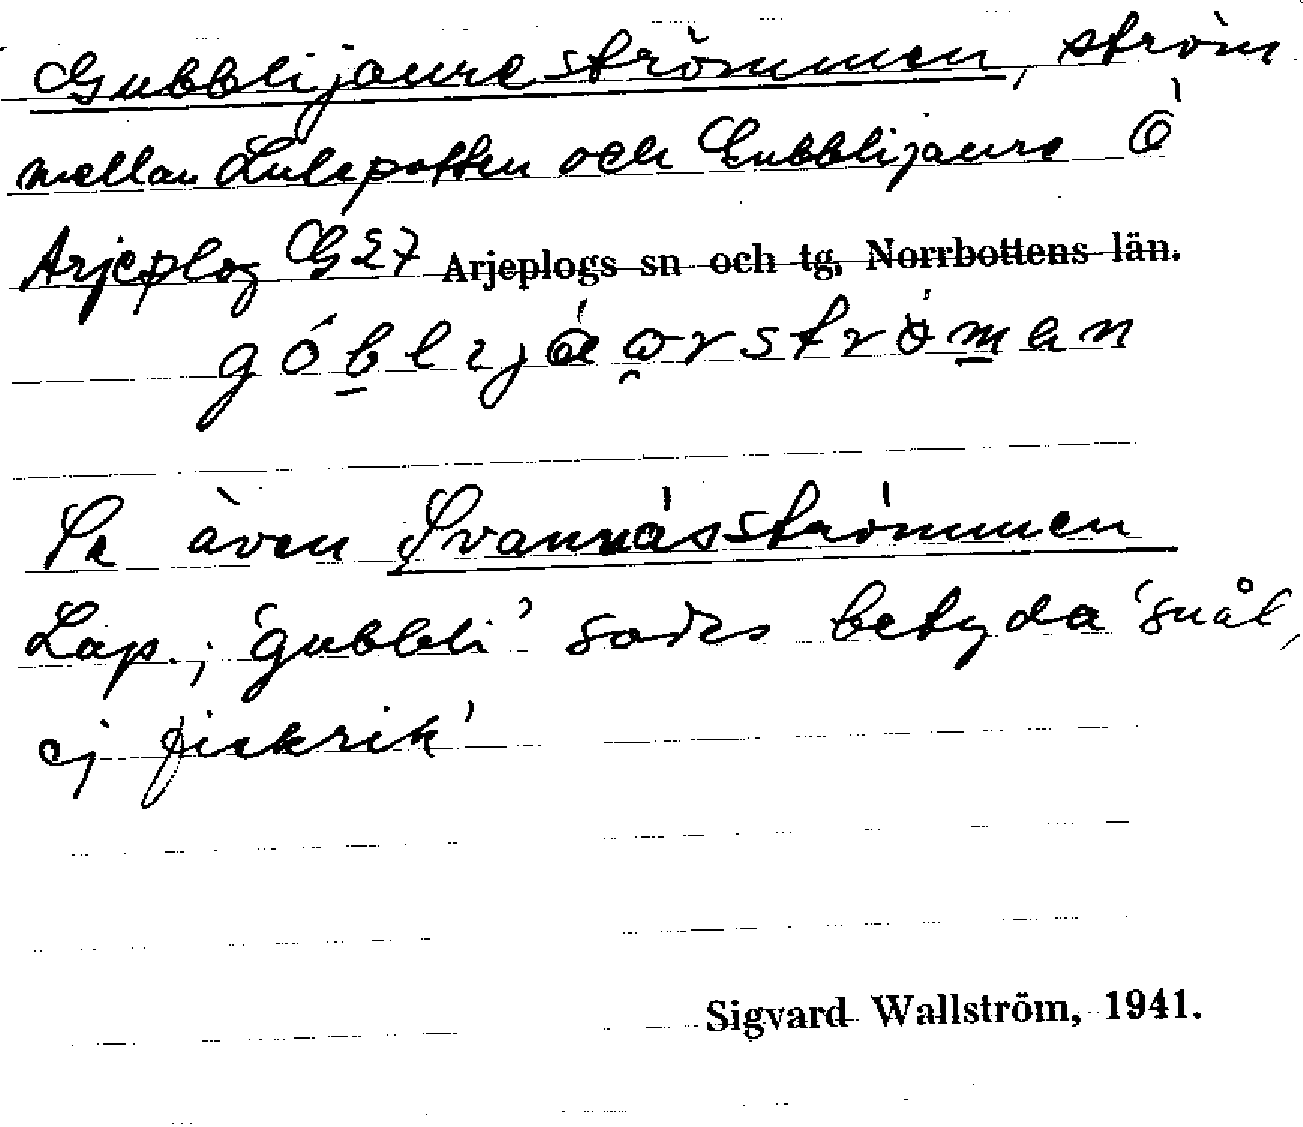 Gubblijaureströmmen, ström
mellan Lulepotten och Gubblijaure Ö
Arjeplog G 27 Arjeplogs sn och tg, Norrbottens län.
Se även Svannäsströmmen
Lap.; 'gubbli' sades betyda 'snål,
ej fiskrik'
Sigvard Wallström, 1941.